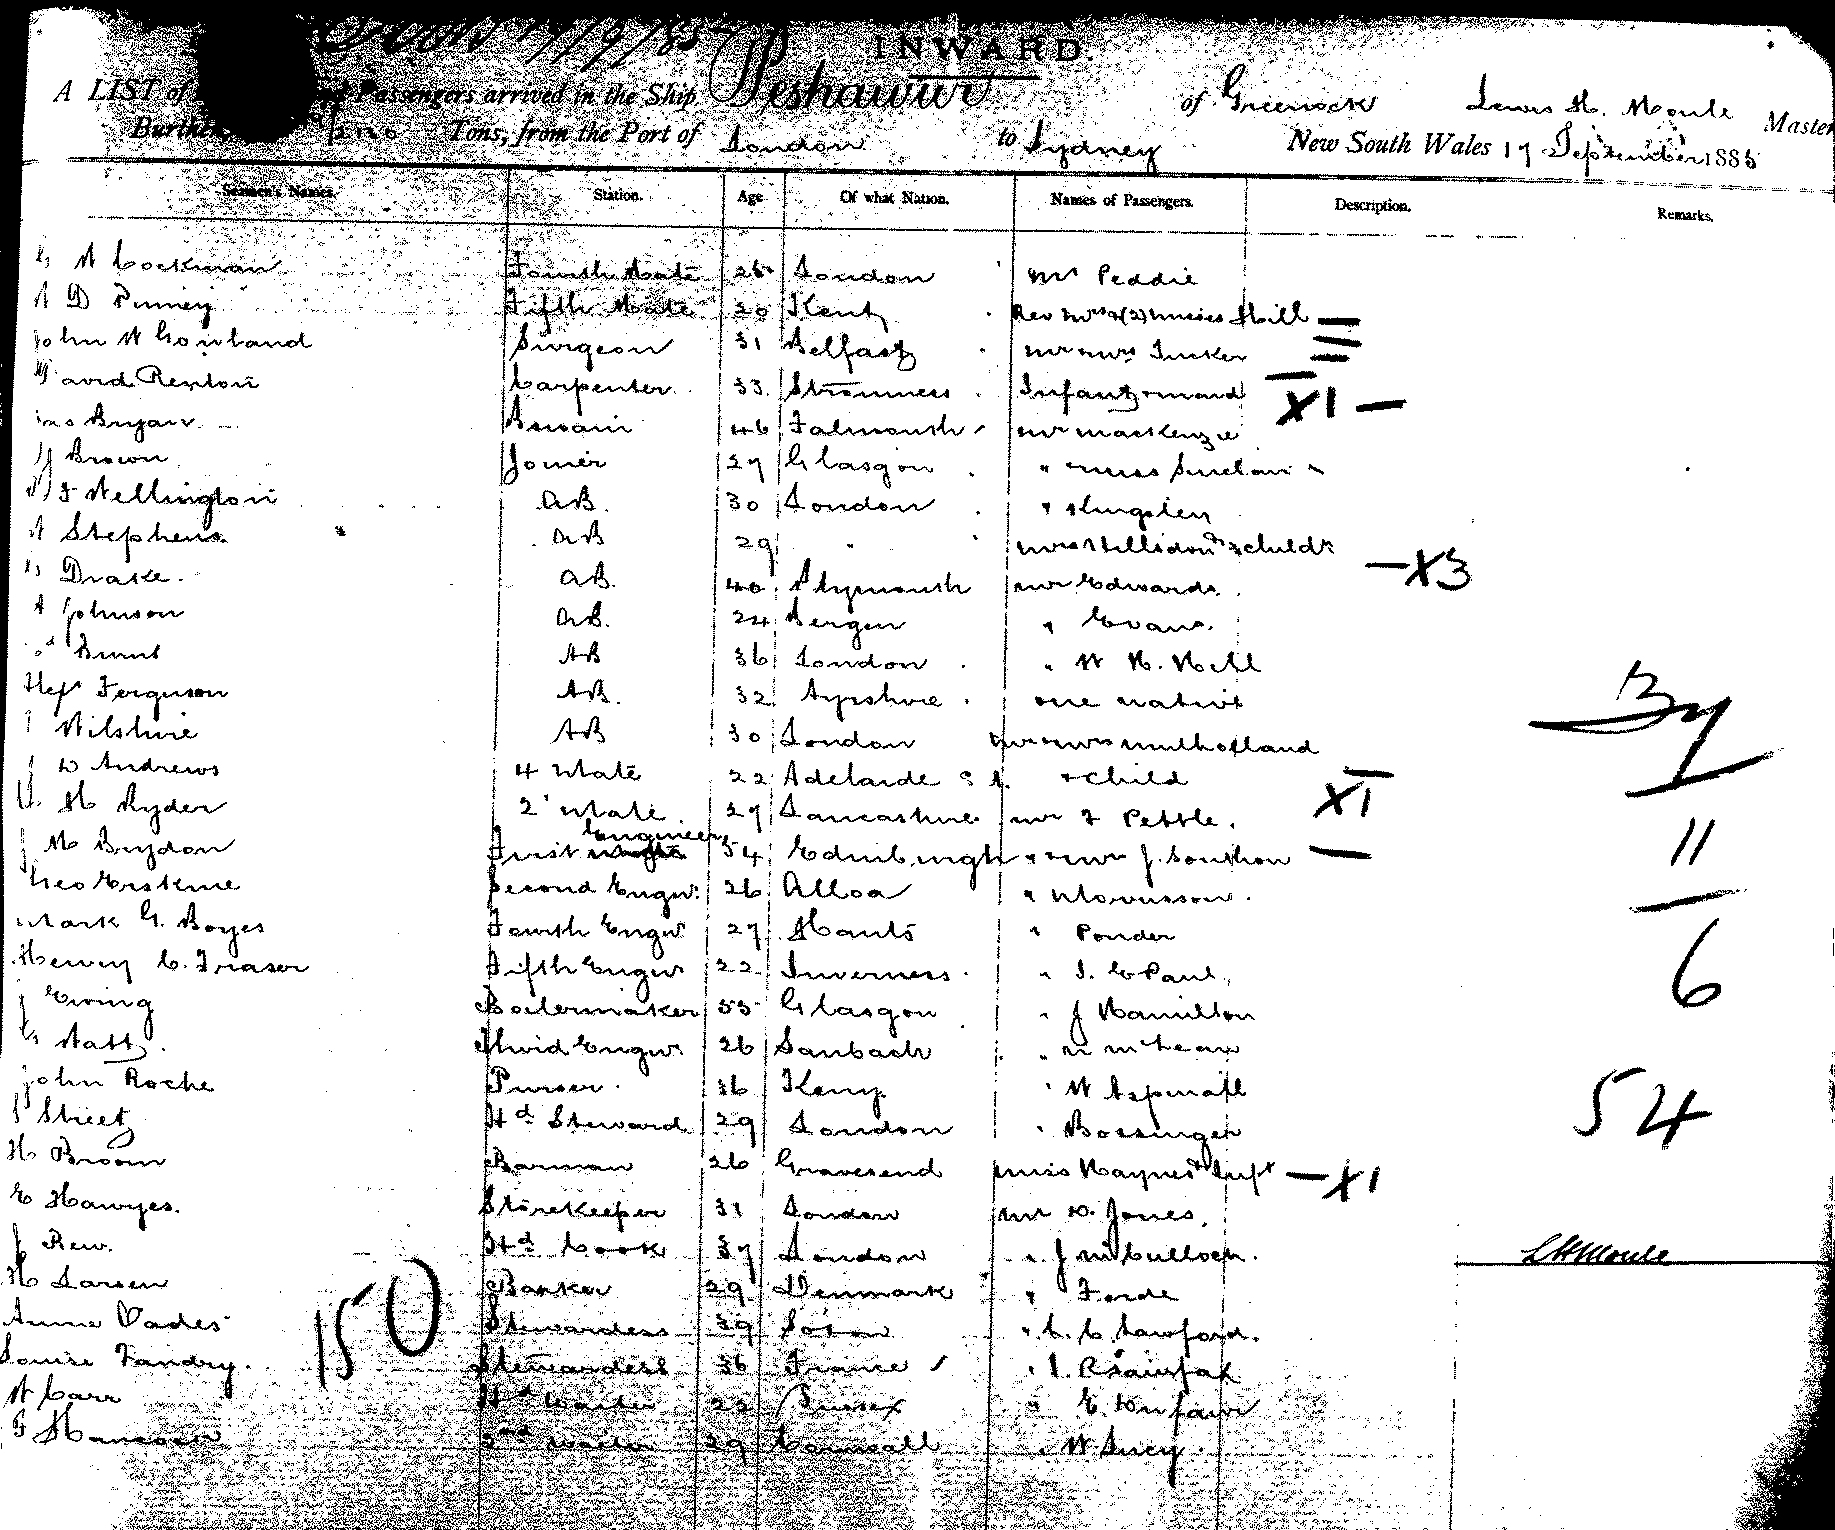 17/9/85
INWARD.
A LIST of Passengers arrived in the Ship Peshawur of Greenock Lewis H. Moule Master
Tons, from the Port of London to Sydney New South Wales 17 September 1885
Seamen's Names. Station. Age Of what Nation. Names of Passengers. Description. Remarks.
Cockman Fourth Mate 26 London Mr Peddie
D Fifth Mate 20 Kent Rev Mrs & (2) Misses Hill
John Surgeon 31 Belfast Mr Mrs Tucker
David Renton Carpenter 33 Stromness Infant & maid X1
Bryan Boswain 46 Falmouth Mr Mackenzie
Brown Joiner 27 Glasgow " Miss Sinclair
Wellington AB. 30 London " Kingsley
Stephens AB 29 " Mrs & child X3
Drake. AB. 40 Plymouth Mr Edwards.
Johnson AB. 24 Bergen " Evans.
AB 36 London " W H. Hill
Ferguson AB. 32 Ayrshire one native
Wilshire AB 30 London Mr & Mrs Mulholland By
Andrews 4 Mate 22 Adelaide & child
H Ryder 2' Mate. 27 Lancashire Mr F Pettle. X1
M Brydon First Engineer 54 Edinburgh " & Mrs J. Southon 11
Geo Erskine Second Engnr. 26 Alloa " Morrisson.
Mark G. Boyes Fourth Engnr 27 Hants " Ponder
Henry C. Fraser Fifth Engnr 22 Inverness " Paul 6
J Ewing Boilermaker 33 Glasgow " J Hamilton
G Watt. Third Engnr 26 Sanbach " McLean
John Roche Purser. 36 " W Aspinall
Street Hd Steward 29 London " Bossinger 54
H Broom Barman 26 Gravesend Miss Haynes X1
E Hawyes. Storekeeper 31 London Mr D. Jones.
J Rew. Hd Cook 37 London " J McCulloch. LHMoule
H Larsen Banker 29 Denmark " Forde
Annie Oades Stewardess 39 " C. C. Lawford.
Louise Tandry. 150 Stewardess 36 France "
W Carr Waiter 22 Sussex " E.
F Hancock 2nd Waiter 29 Cornwall " W Lucy